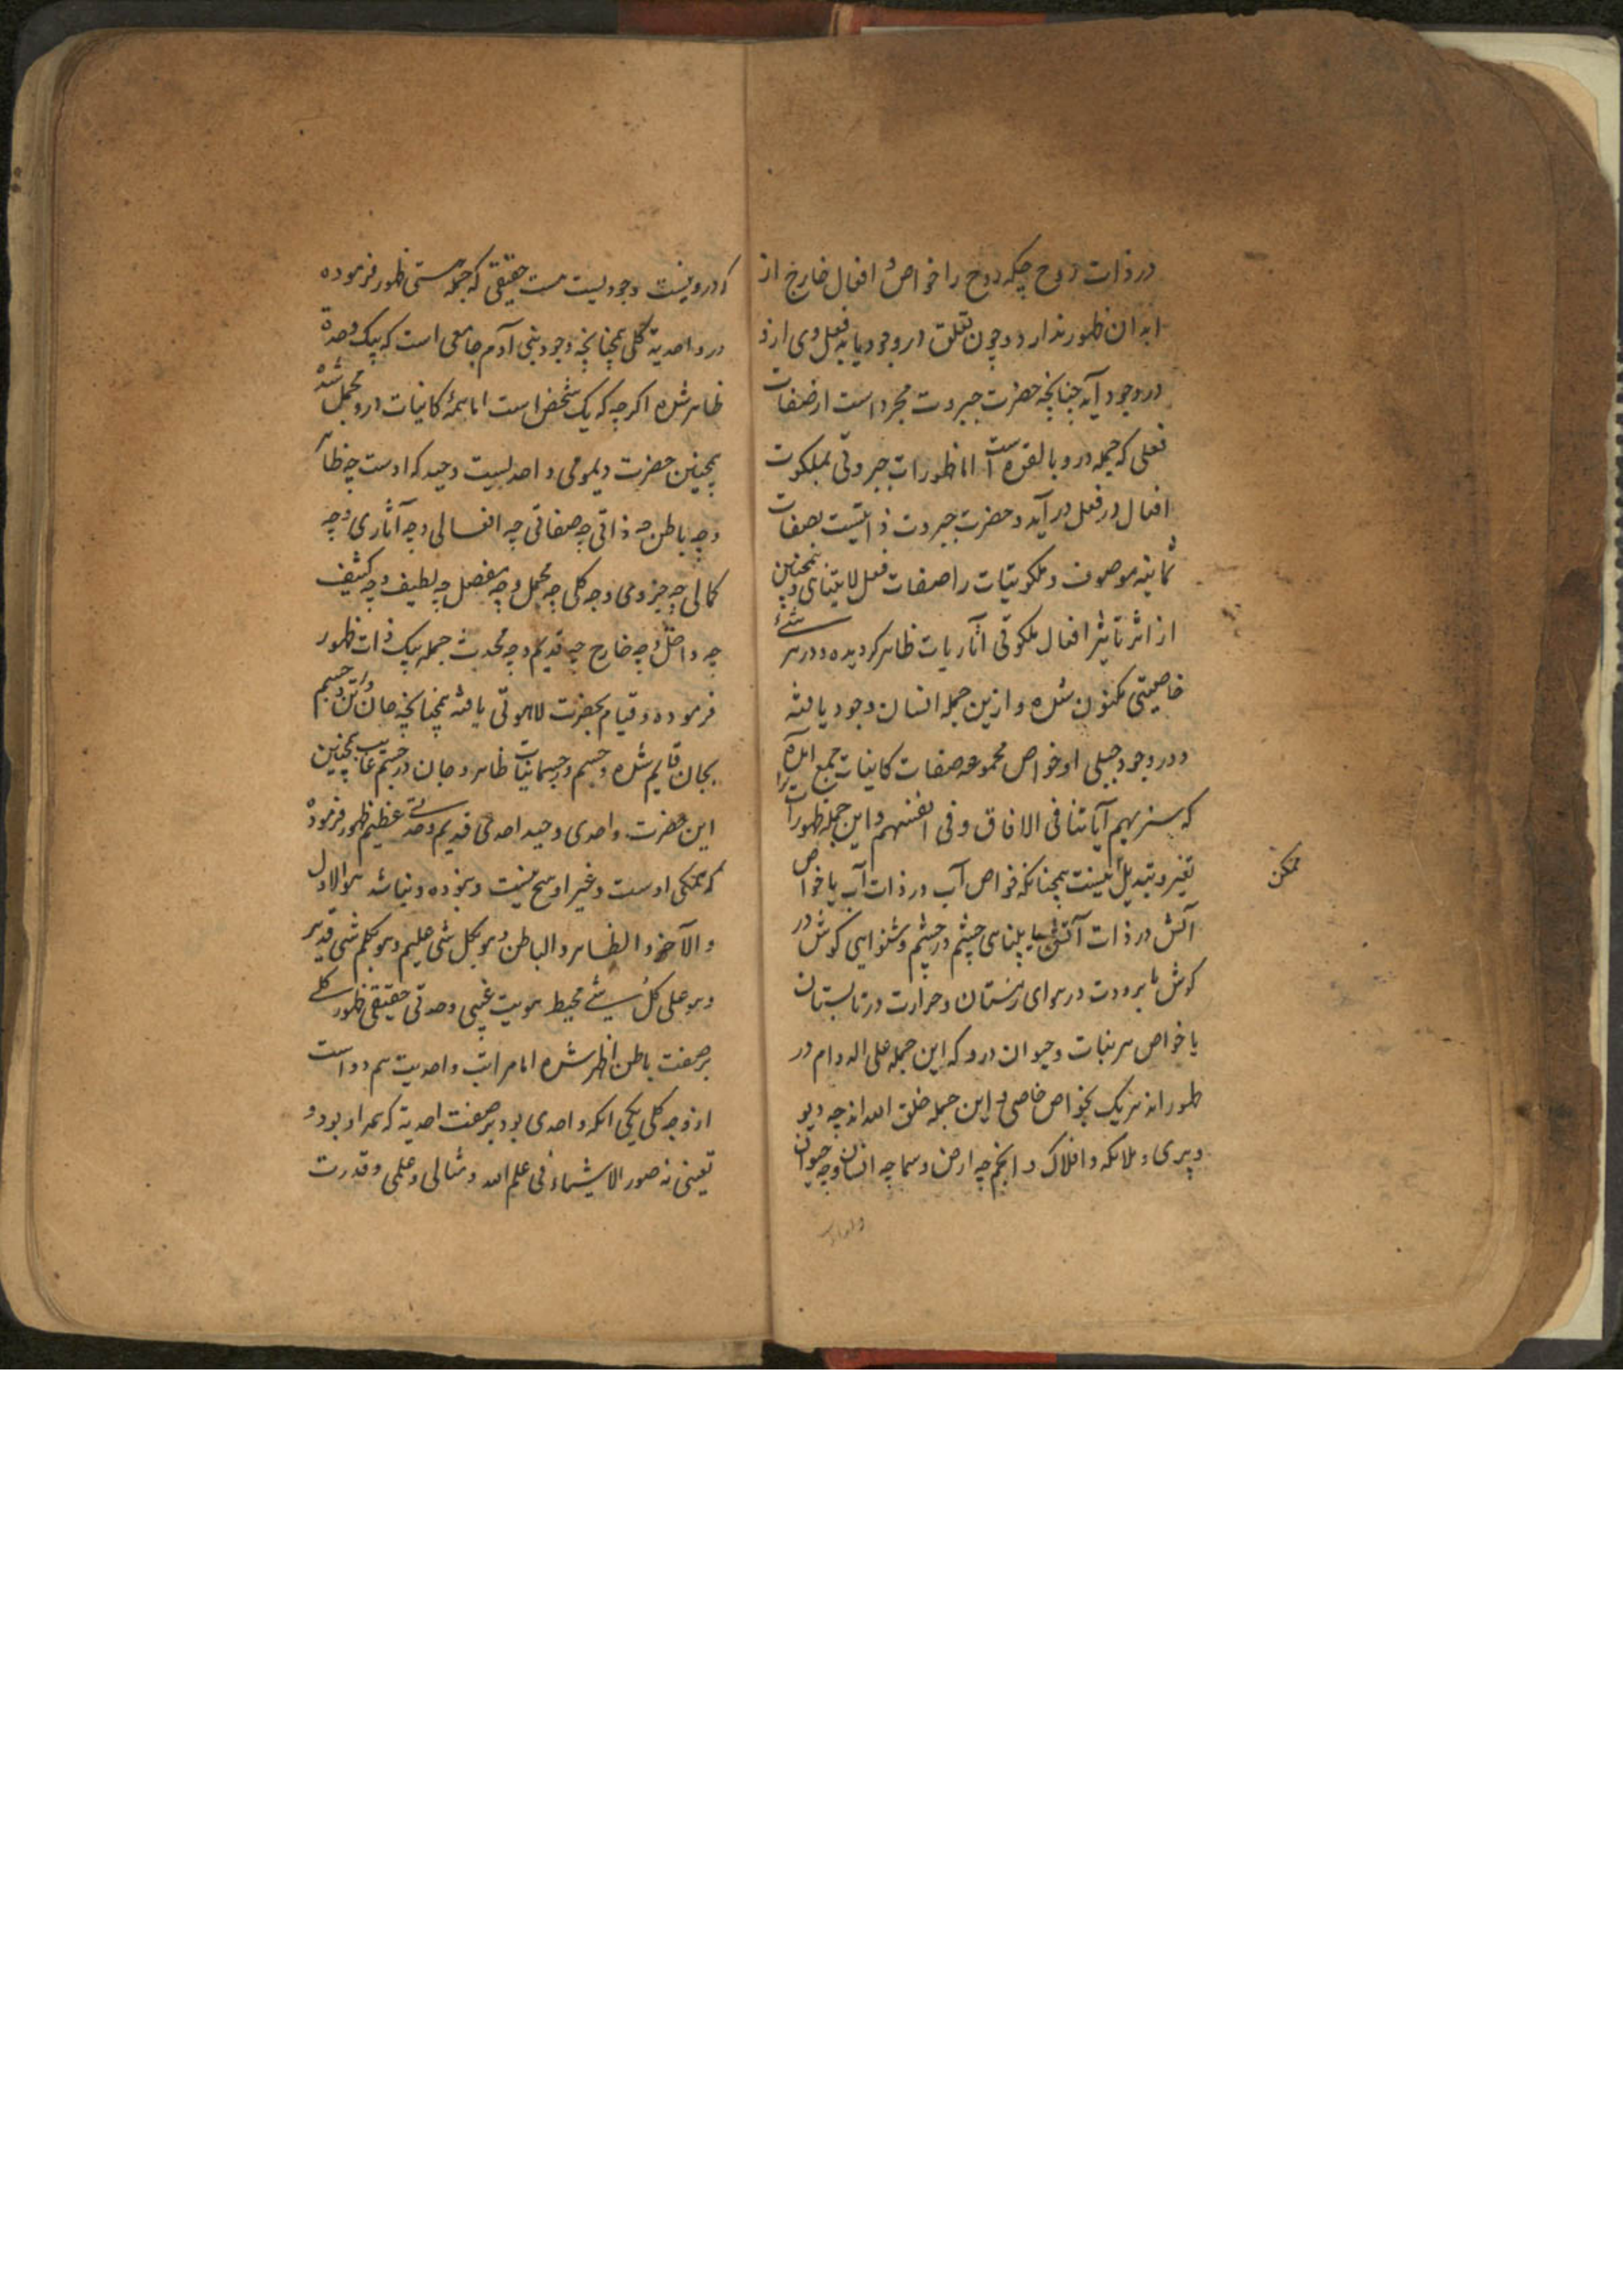 در ذات روح چکه روح را خواص و افعال خارج از
ابدان ظهور ندارد و چون تعلق در وجود یابد فعل وی ازو
در وجود آید چنانچه حضرت جبروت مجرد است از صفات
فعلی که جمله درو بالقوه است اما ظهورات جبروتی بملکوت
افعال در فعل در آید و حضرت جبروت ذاتیست بصفات
ثمانیه موصوف و ملکوتیات را صفات فعل لایتناهی و همچنین
از اثر تاثیر افعال ملکوتی آثاریات ظاهر کردیده و در هر شئے
خاصیتی مکنون شده و ازین جمله انسان وجود یافته
و در وجود جبلی او خواص مجموعه صفات کاینات جمع آمده
که سنریهم آیاتنا فی الافاق و فی انفسهم و این جمله ظهورات را
تغیر و تبدیل نیست همچنانکه خواص آب در ذات آب یا خواص
آتش در ذات آتش یا بینای چشم در چشم و شنوایی کوش در
کوش یا برودت در هوای زمستان و حرارت در تابستان
یا خواص هر نبات و حیوان درو که این جمله علی الدوام در
ظهور اند هر یک بخواص خاصی و این جمله خلق الله اند چه دیو
و پری و ملائکه و افلاک و انجم چه ارض و سما چه انسان و چه حیوان
ممکن
درو نیست وجودیست هست حقیقی که جمله هستی ظهور فرموده
در واحدیة کلی همچنانچه وجود بنی آدم جامعی است که بیک وحدة
ظاهر شده اکرچه که یک شخص است اما همهٔ کاینات درو مجمل شده
همچنین حضرت دیمومی واحدیست وحید که اوست چه ظاهر
و چه باطن چه ذاتی چه صفاتی چه افعالی و چه آثاری و چه
کمالی چه جزوی و چه کلی چه مجمل و چه مفصل چه لطیف و چه کثیف
چه داخل و چه خارج چه قدیم و چه محدث جمله بیک ذات ظهور
فرموده و قیام بحضرت لاهوتی یافته همچنانچه جان در تن و جسم
بجان قایم شده و جسم و جسمانیات ظاهر و جان در جسم غایب همچنین
این حضرت واحدی وحید احدی قدیم وحدتے عظیم ظهور فرموده
که همکی اوست و غیر او هیچ نیست و نبوده و نباشد هو الاول
و الآخر و الظاهر و الباطن و هو بکل شی علیم و هو بکلم شی قدیر
و هو علی کل شئے محیط هویت غیبی وحدتی حقیقی ظهور کلے
بر صفت باطن اظهر شده اما مراتب واحدیت هم دو است
از وجه کلی یکی انکه واحدی بود بر صفت احدیة که همه او بود و
تعینی نه صور الاشیاء فی علم الله و مثالی و علمی و قدرت